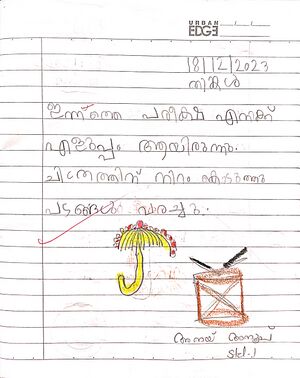 URBAN
EDGE
18/12/2023
തിങ്കൾ
ഇന്നത്തെ പരീക്ഷ എനിക്ക്
എളുപ്പം ആയിരുന്നു.
ചിത്രത്തിന് നിറം കൊടുത്തു
പടങ്ങൾ വരച്ചു.
അനയ് അനൂപ്
std.1